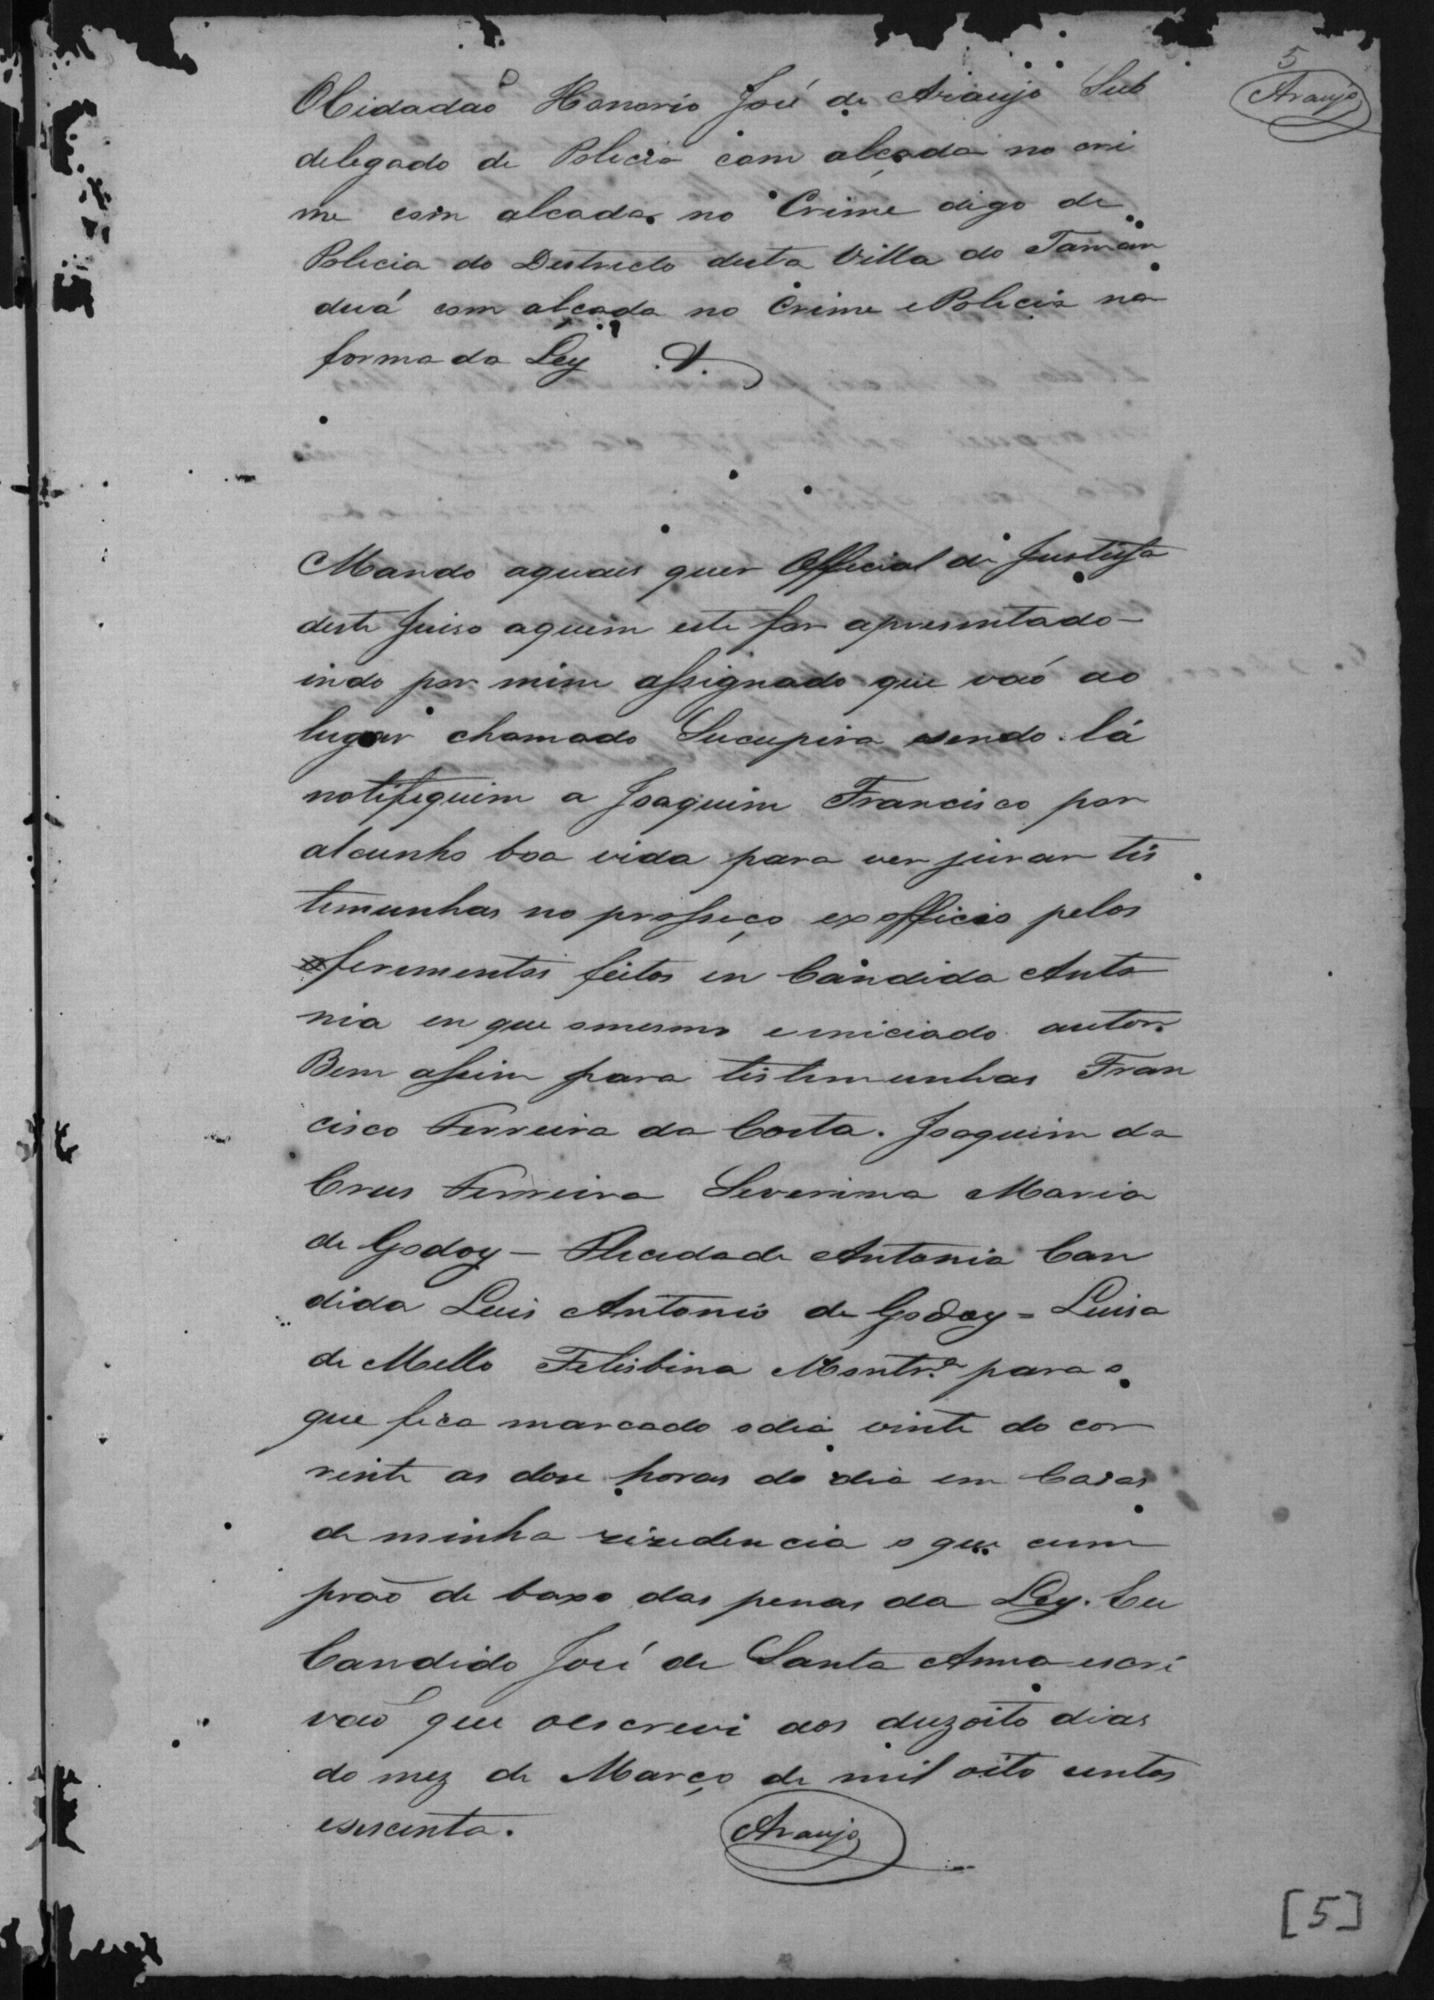 5
Araujo
O Cidadaõ Honorio José de Araujo Sub
delegado de Policia com alçada no cri
me com alcada no Crime digo de
Policia do Destricto desta Villa do Taman
duá com alçada no Crime e Policia na
forma da Ley V.
Mando aquais quer Official de Justissa
deste Juiso aquem este for apresentado
indo por mim assignado que vaó ao
lugar chamado Sucupira esendo lá
notifiquim a Joaquim Francisco por
alcunho boa vida para ver jurar tes
temunhas no prosseço exofficio pelos
ferementos feitos en Cándida Anto
nia en que omesmo e iniciado autor.
Bem assim para testemunhas Fran
cisco Ferreira da Costa. Joaquim da
Crus Ferreira Severina Maria
de Godoy – Felecidade Antonia Can
dida Luis Antonio de Godoy = Luisa
de Mello Felisbina Montr.ª para o
que fica marcado odia vinte do cor
rente as dose horas do dia em Casas
de minha rizedencia o que cum
praõ de baxo das penas da Ley. Eu
Candido José de Santa Anna escri
vaõ que oescrevi aos duzoito dias
do mez de Março de mil oito centos
esescenta.
Araujo
[5]